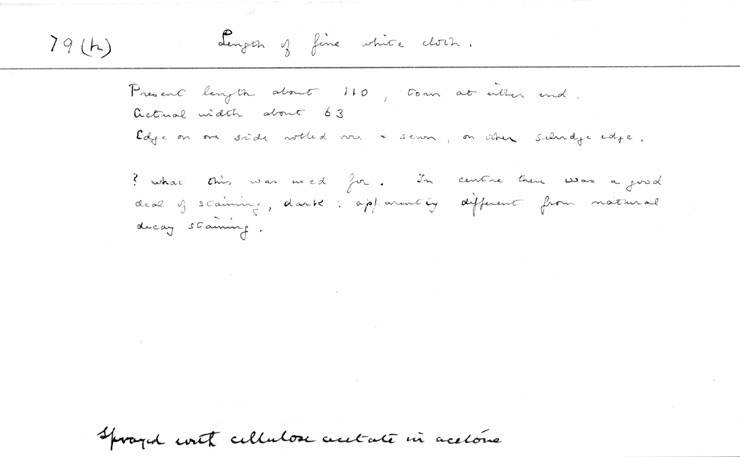 79(h) Length of fine white cloth.
Present length about 110, torn at either end.
Actual width about 63
Edge on one side rolled over & sewn, on other selvidge edge.
? what this was used for. In centre there was a good
deal of staining, dark : apparently different from natural
decay staining.
Sprayed with cellulose acetate in acetone